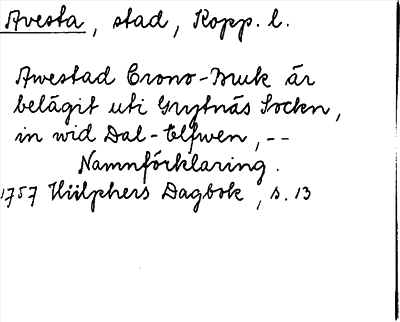 Avesta, stad, Kopp. l.
Awestad Crono-Bruk är
belägit uti Grytnäs Sockn,
in wid Dal-Elfwen, --
Namnförklaring.
1757 Hülphers Dagbok, s. 13